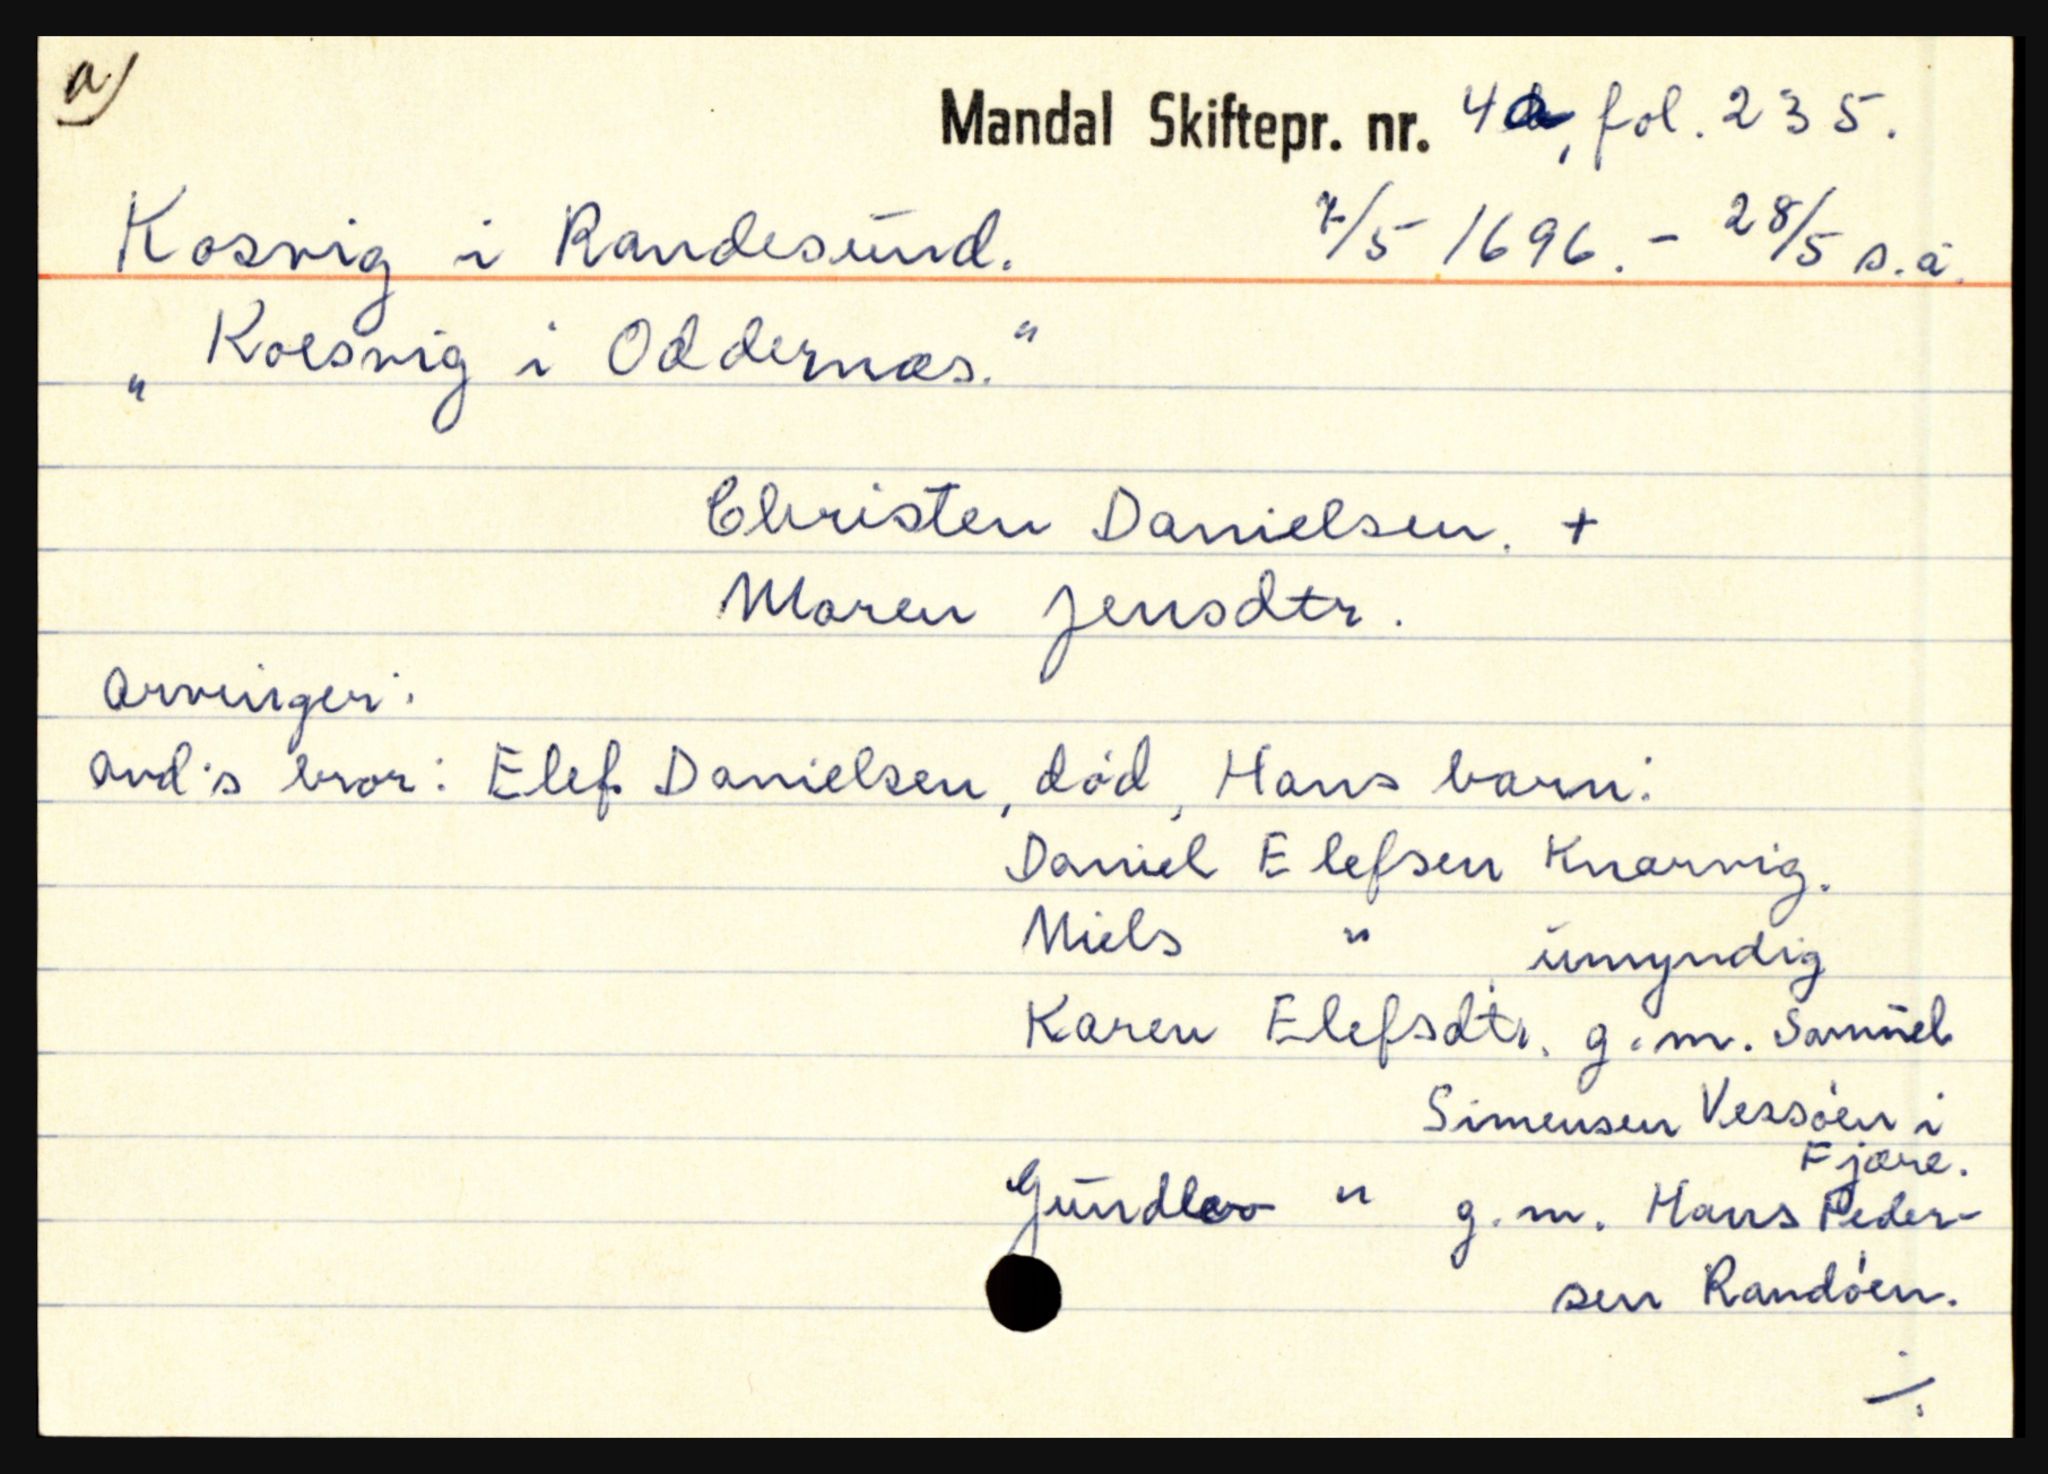 a)
Mandal Skiftepr. nr. 4a, fol. 235.
Kosvig i Randesund. 7/5 1696. - 28/5 s.å.
„ Koesvig i Oddernæs."
Christen Danielsen. +
Maren Jensdtr.
Arvinger:
Avd's bror: Elef Danielsen, død, Hans barn:
Daniel Elefsen Knarvig.
Niels " umyndig
Karen Elefsdtr. g.m. Samuel
Simensen Vessøen i
Fjære.
Gundler " g.m. Hans Peder-
sen Randøen.
./.